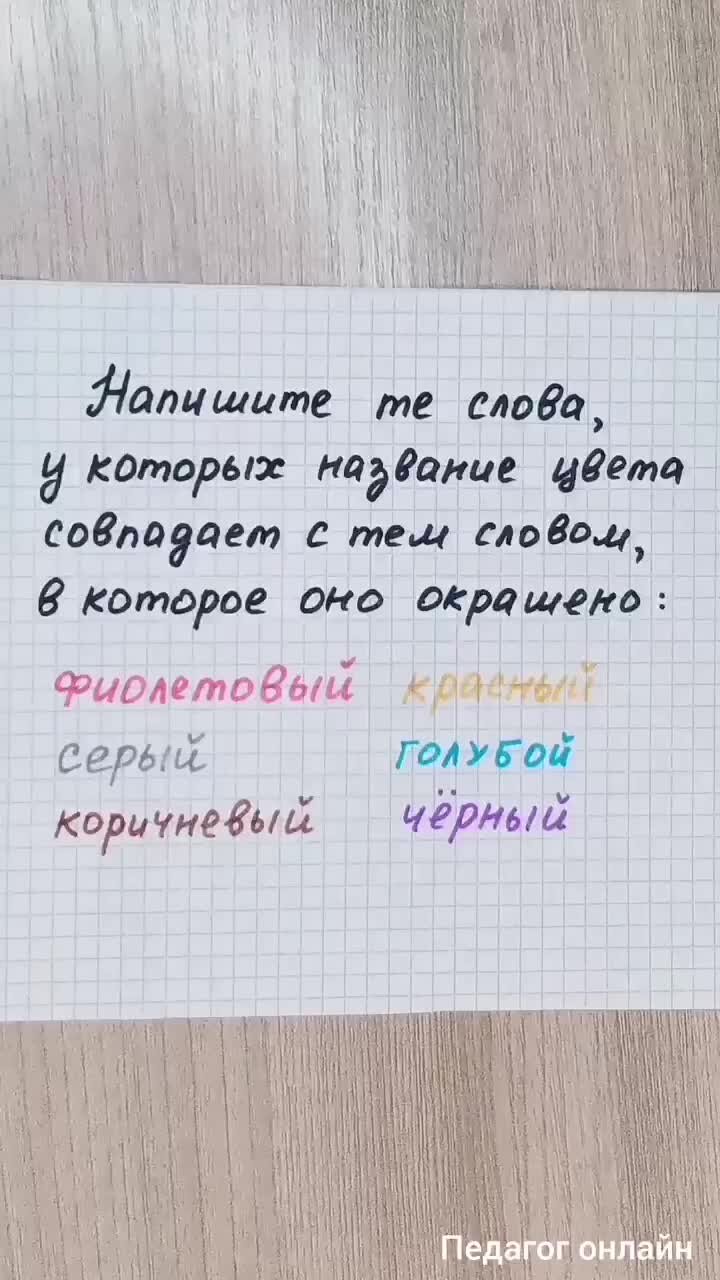 Напишите те слова,
у которых название цвета
совпадает с тем словом,
в которое оно окрашено:
фиолетовый красный
серый голубой
коричневый чёрный
Педагог онлайн